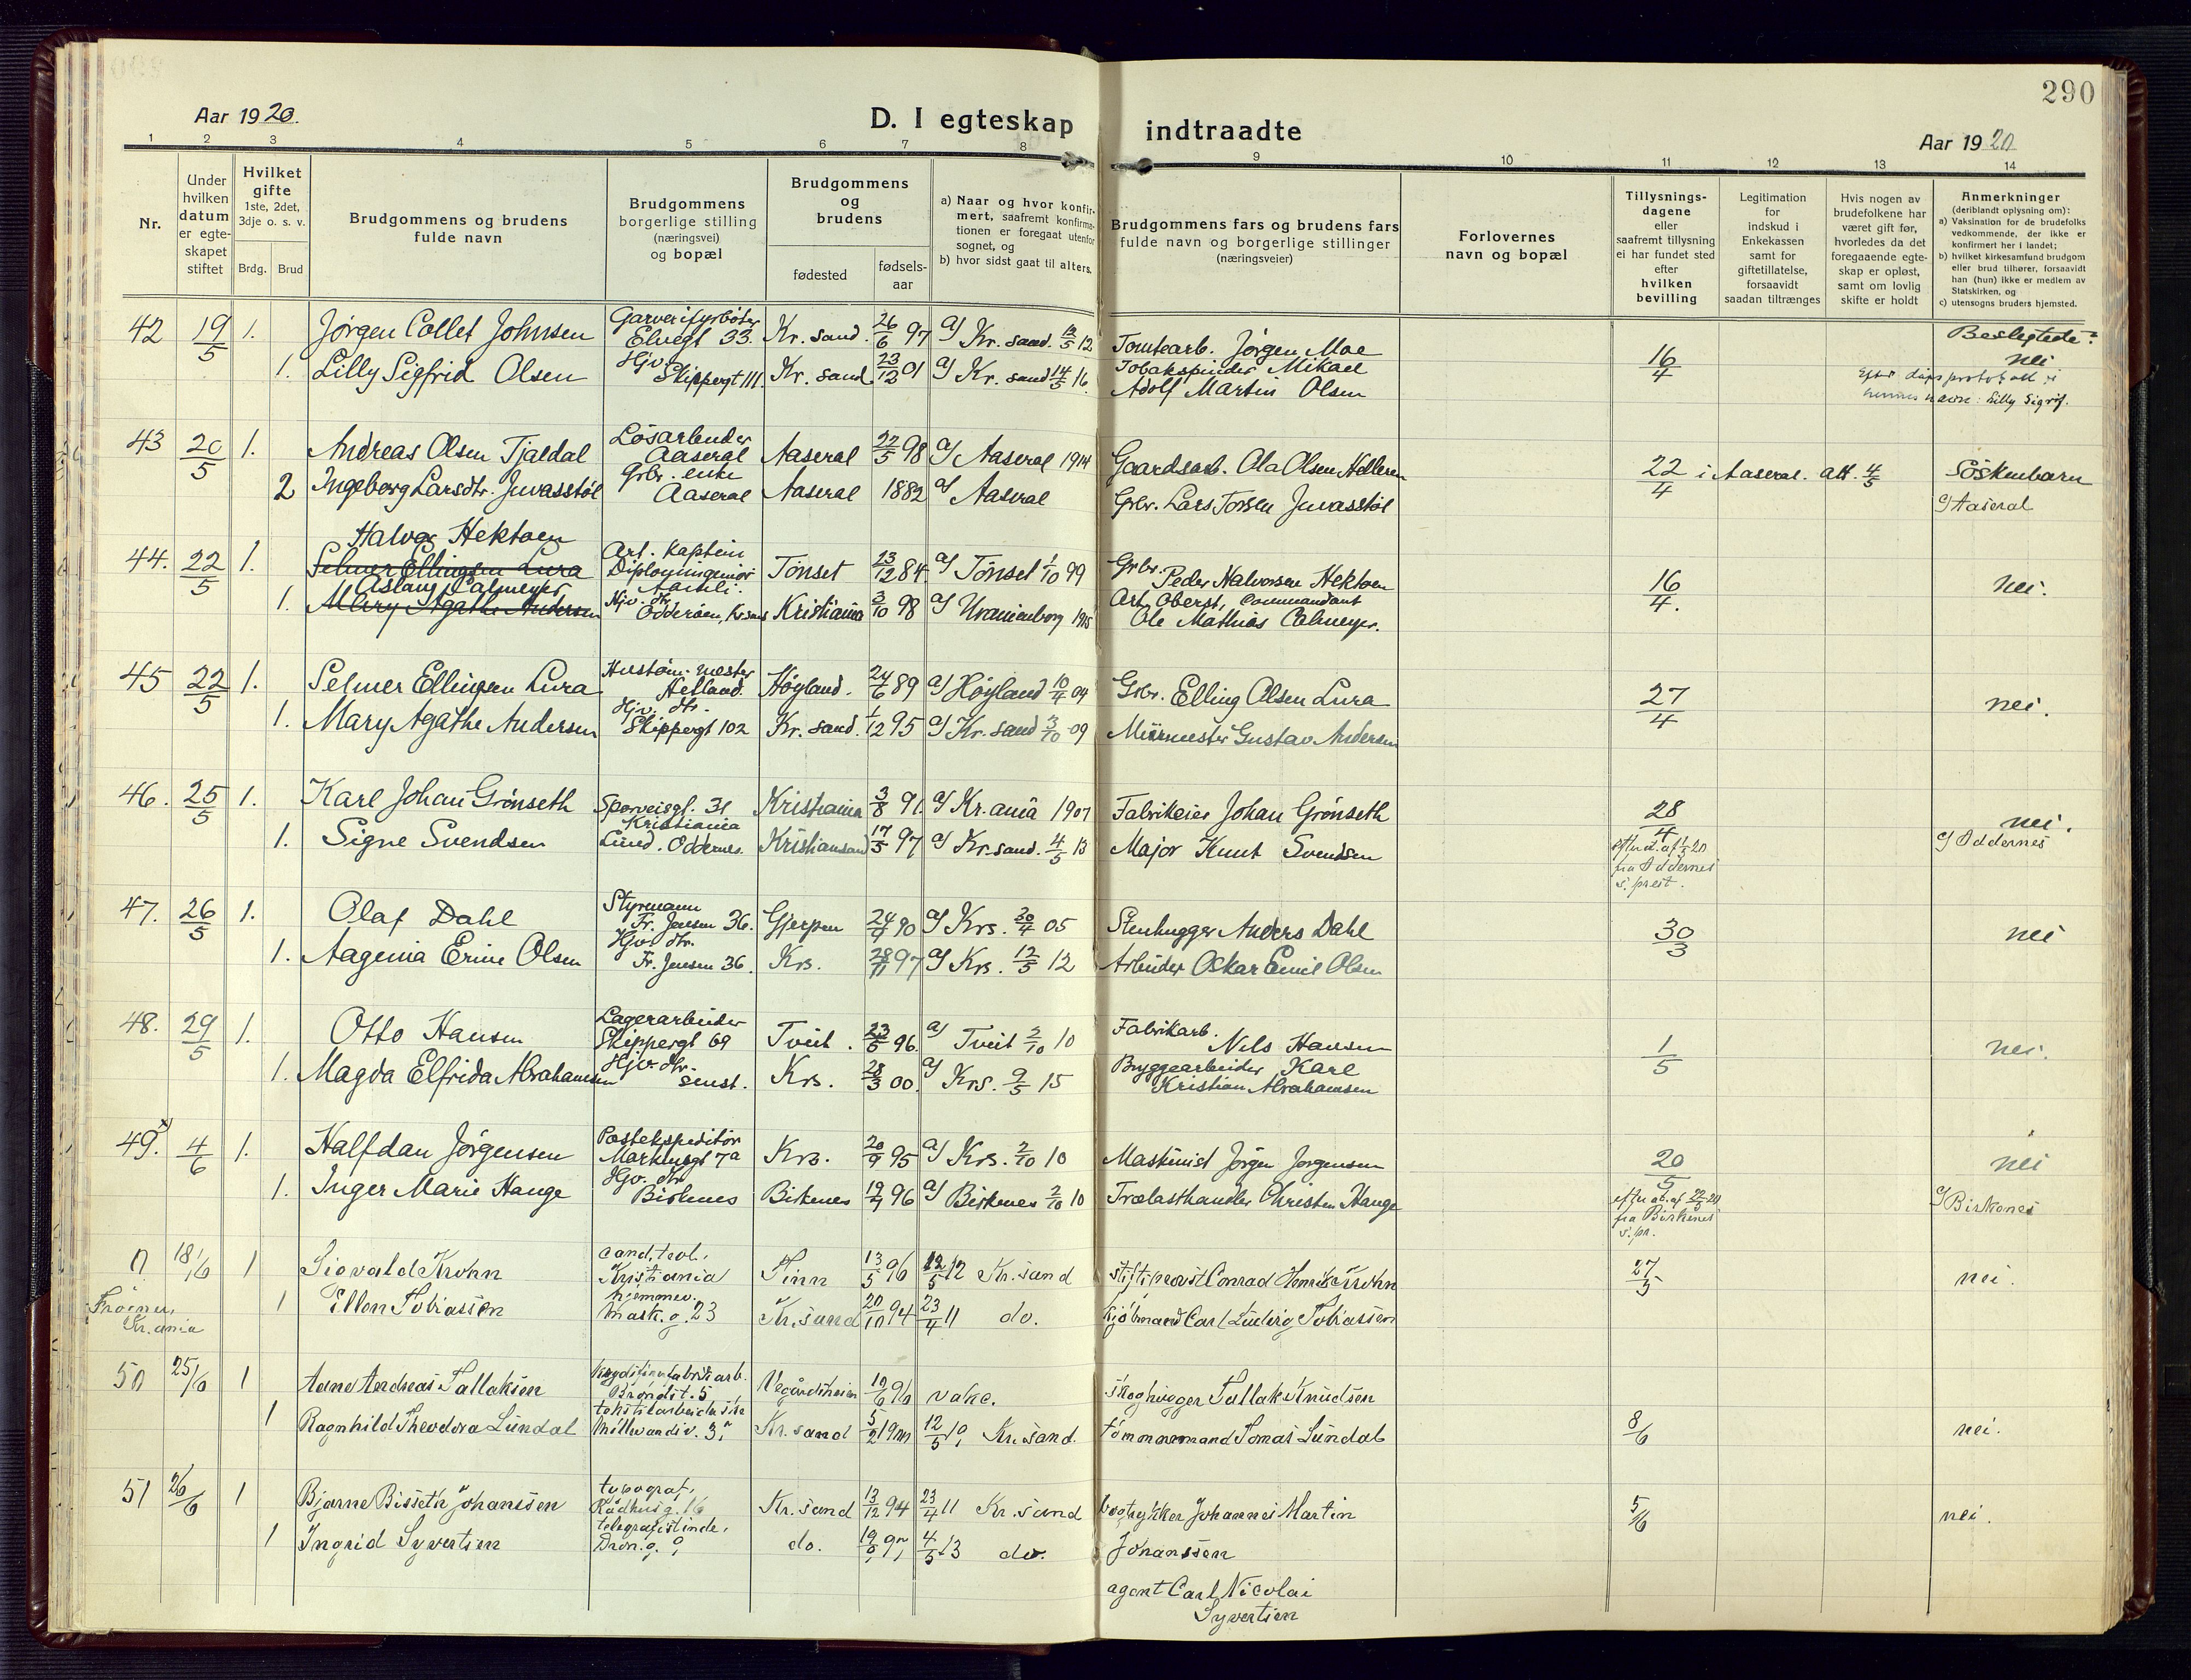 290
Aar 1920.
D. I egteskap indtraadte
Aar 1920
1 2 3 4 5 6 7 8 9 10 11 12 13 14
Nr.
Under hvilken datum er egteskapet stiftet
Hvilket gifte 1ste, 2det, 3dje o. s. v.
Brdg. Brud
Brudgommens og brudens fulde navn
Brudgommens borgerlige stilling (næringsvei) og bopæl
Brudgommens og brudens
fødested
fødsels-aar
a) Naar og hvor konfirmert, saafremt konfirmationen er foregaat utenfor sognet, og
b) hvor sidst gaat til alters.
Brudgommens fars og brudens fars fulde navn og borgerlige stillinger (næringsveier)
Forlovernes navn og bopæl
Tillysnings-dagene eller saafremt tillysning ei har fundet sted efter hvilken bevilling
Legitimation for indskud i Enkekassen samt for giftetillatelse, forsaavidt saadan tiltrænges
Hvis nogen av brudefolkene har været gift før, hvorledes da det foregaaende egteskap er opløst, samt om lovlig skifte er holdt
Anmerkninger
(deriblandt oplysning om):
a) Vaksination for de brudefolks vedkommende, der ikke er konfirmert her i landet;
b) hvilket kirkesamfund brudgom eller brud tilhører, forsaavidt han (hun) ikke er medlem av Statskirken, og
c) utensogns bruders hjemsted.
42 19/5 1. Jørgen Collet Johnsen Garverifyrbøter Elvegt 33. Kr. sand. 26/6 97 a) Kr. sand. 12/5 12 Tomtearb. Jørgen Moe 16/4 Beslegtede: nei
1. Lilly Sigfrid Olsen Hjv. Skippergt 111 Kr. sand. 23/12 01 a) Kr. sand 14/5 16. Tobakspinder Mikael Adolf Martin Olsen
Efter dåpsprotokoll er hennes navn: Lilly Sigrif.
43 20/5 1. Andreas Olsen Tjaldal Løsarbeider Aaseral Aaseral 22/5 98 a) Aaseral 1914 Gaardsarb. Ola Olsen 22/4 i Aaseral. att. 4/5 Söskenbarn
2 Ingeborg Larsdtr. Juvasstøl Grbr. enke Aaseral Aaseral 1882 a) Aaseral Grbr. Lars Torsen Juvasstøl c) Aaseral
Halvor Hektoen
44. 22/5 1. Selmer Ellingsen Lura Art. Kaptein Diplomingeniør Tönset 23/12 84 a) Tönset 1/10 99 Grbr. Peder Halvorsen Hektoen 16/4. nei.
Aslaug Calmeyer
1. Mary Agathe Andersen Hjv. dtr. Odderøen, Kr.sand Kristiania 3/10 98 a) Uranienborg 1915 Art. Oberst, Commandant Ole Mathias Calmeyer.
45 22/5 1. Selmer Ellingsen Lura Helland. Høyland. 24/6 89 a) Höyland 10/4 04 Grbr. Elling Olsen Lura 27/4 nei.
1. Mary Agathe Andersen Hjv. dtr. Skippergt 102 Kr. sand. 1/12 95 a) Kr. sand 3/10 09 Mürmester Gustav Andersen
46. 25/5 1. Karl Johan Grönseth Sporveisgt. 31 Kristiania Kristiania 3/8 91 a) Kr.ania 1907 Fabrikeier Johan Grönseth 28/4 nei.
1. Signe Svendsen Lund. Oddernes. Kristiansand 17/5 97 a) Kr.sand. 4/5 13 Major Knut Svendsen efter at. af 1/5 20 fra Oddernes s. prest. c) Oddernes
47. 26/5 1. Olaf Dahl Styrmann Fr. Jensen 36. Gjerpen 24/9 90 a) Krs. 30/4 05 Stenhugger Anders Dahl 30/3 nei
1. Aagenia Erine Olsen Hjv. dtr. Fr. Jensen 36. Krs. 28/11 97 a) Krs. 12/5 12 Arbeider Oskar Emil Olsen
48. 29/5 1. Otto Hansen Lagerarbeider Skippergt 69 Tveit. 23/5 96. a) Tveit 2/10 10 Fabrikarb. Nils Hansen 1/5 nei.
1. Magda Elfrida Abrahamsen Hjv. dtr. senst. Krs. 28/3 00. a) Krs. 9/5 15 Byggearbeider Karl Kristian Abrahamsen
49. 4/6 1. Halfdan Jörgensen Postekspeditör Markensgt 7a Krs. 20/9 95 a) Krs. 2/10 10 Maskinist Jörgen Jorgensen 20/5 nei
1. Inger Marie Hauge Hjv. dtr. Birkenes Birkenes 19/7 96 a) Birkenes 2/10 10 Trælasthandler Christen Hauge efter at. af 22/5 20 fra Birkenes s. pr. c) Birkenes
0 18/6 1 Sigvald Krohn cand. teol. Kristiania Tinn 13/5 96 12/5 12 Kr.sand stiftsprovst Conrad Henrik Krohn 27/5 nei.
Frogner, Kr.ania
1 Ellen Tobiassen hjemmev. Mark.g. 23 Kr.sand 20/10 94 23/4 11 do. kjöbmand Carl Ludvig Tobiassen
50 25/6 1 Aane Andreas Tallaksen Brøndst. 5 Vegårdsheien 19/6 96 vakc. skoghugger Tallak Knudsen
1 Ragnhild Theodora Lundal tekstilarbeiderske Kr.sand 5/2 1900 12/5 Kr.sand. tömmermand Tomas Lundal 8/6 nei.
51 26/6 1 Bjarne Bisseth Johanssen typograf, Rådhusg. 16 Kr.sand 13/12 94 23/4 11 Kr.sand bogtrykker Johannes Martin Johanssen 5/6 nei.
1 Ingrid Syvertsen telegrafistinde, Dron.g. 9 do. 19/9 97 4/5 13 do. agent Carl Nicolai Syvertsen